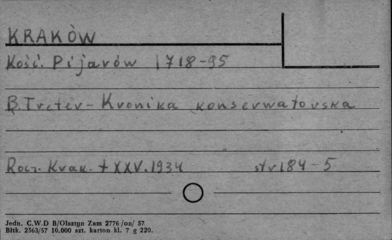 KRAKÓW
Kość. Pijarów 1718-95
B. Treter - Kronika konserwatorska
Rocz. Krak. t XXV. 1934 str 184-5
Jedn. C.W.D B/Olsztyn Zam 2776 /on/ 57.
Bltk. 2563/57 10.000 szt. karton kl. 7 g 220.